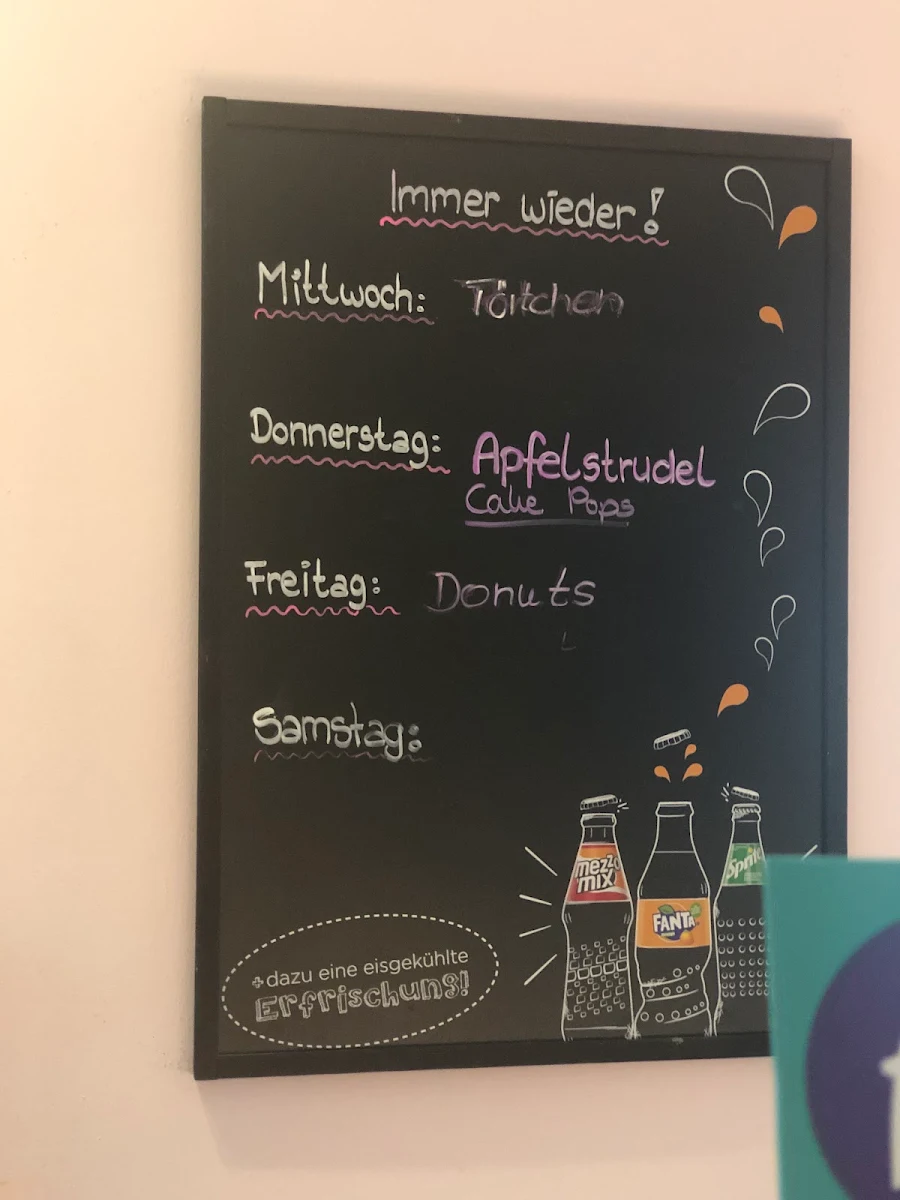 Immer wieder!
Mittwoch: Törtchen
Donnerstag: Apfelstrudel
Cake Pops
Freitag: Donuts
L
Samstag:
mezzo
mix
FANTA
Sprite
+dazu eine eisgekühlte
Erfrischung!